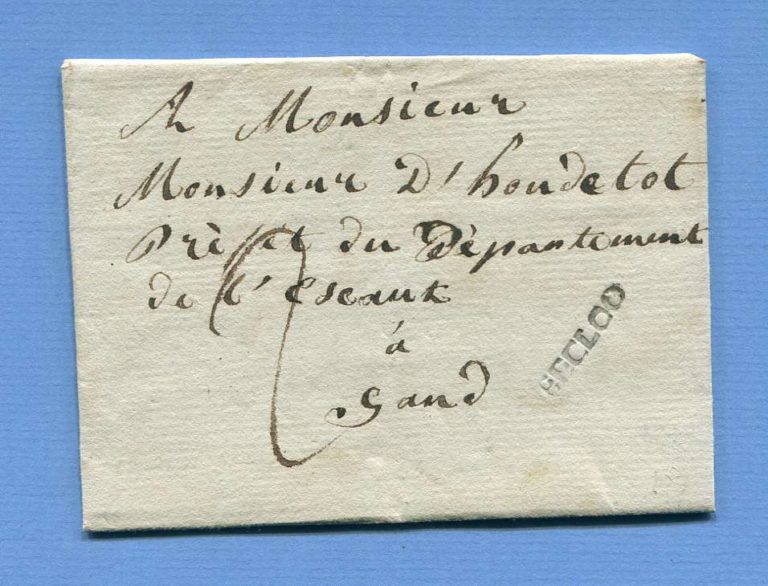 A Monsieur
Monsieur D'houdetot
Prèfet du Dèpantement
de l'Escaux
á
Gand
EECLOO